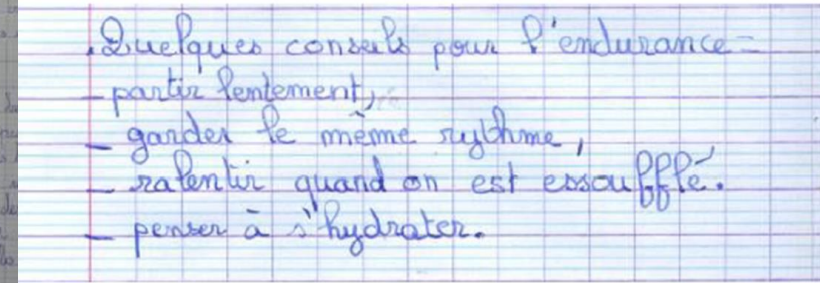 Quelques conseils pour l'endurance =
- partir lentement,
- garder le même rythme,
- ralentir quand on est essoufflé.
- penser à s'hydrater.